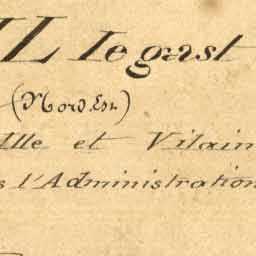 IL Iegast
(Nord Est)
Ille et Vilain
s l'Administration